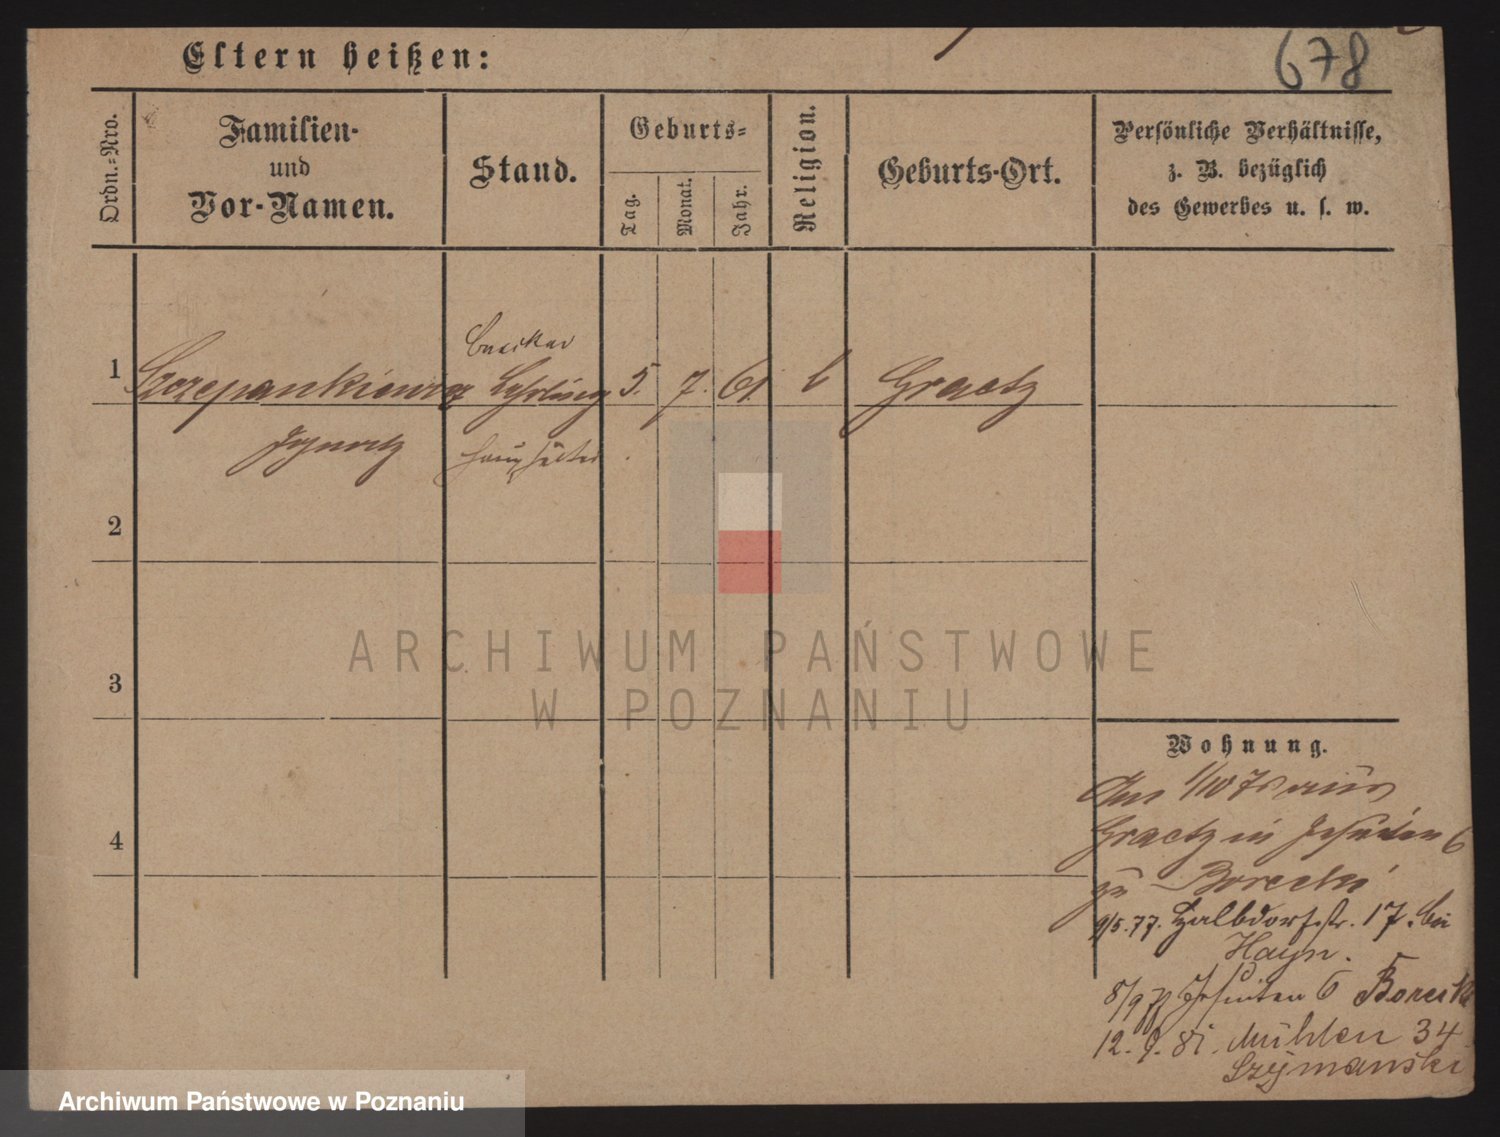 678
Eltern heißen:
Ordn.-Nro.
Familien-
und
Vor-Namen.
Stand.
Geburts-
Tag.
Monat.
Jahr.
Religion.
Geburts-Ort.
Persönliche Verhältnisse,
z. B. bezüglich
des Gewerbes u. s. w.
1
Szczepankiewicz Lehrling 5. 7. 61. Graetz
Ignatz Haushälter
2
3
4
ARCHIWUM PAŃSTWOWE
W POZNANIU
Wohnung.
Am 1/10 75 aus
Graetz in Jesuiten 6
zu Borecki
9/5.77. Halbdorfstr. 17. bei
Hayn.
8/9 77 Jesuiten 6 Borecki
12. 9. 81. Mühlen 34
Szymanski
Archiwum Państwowe w Poznaniu